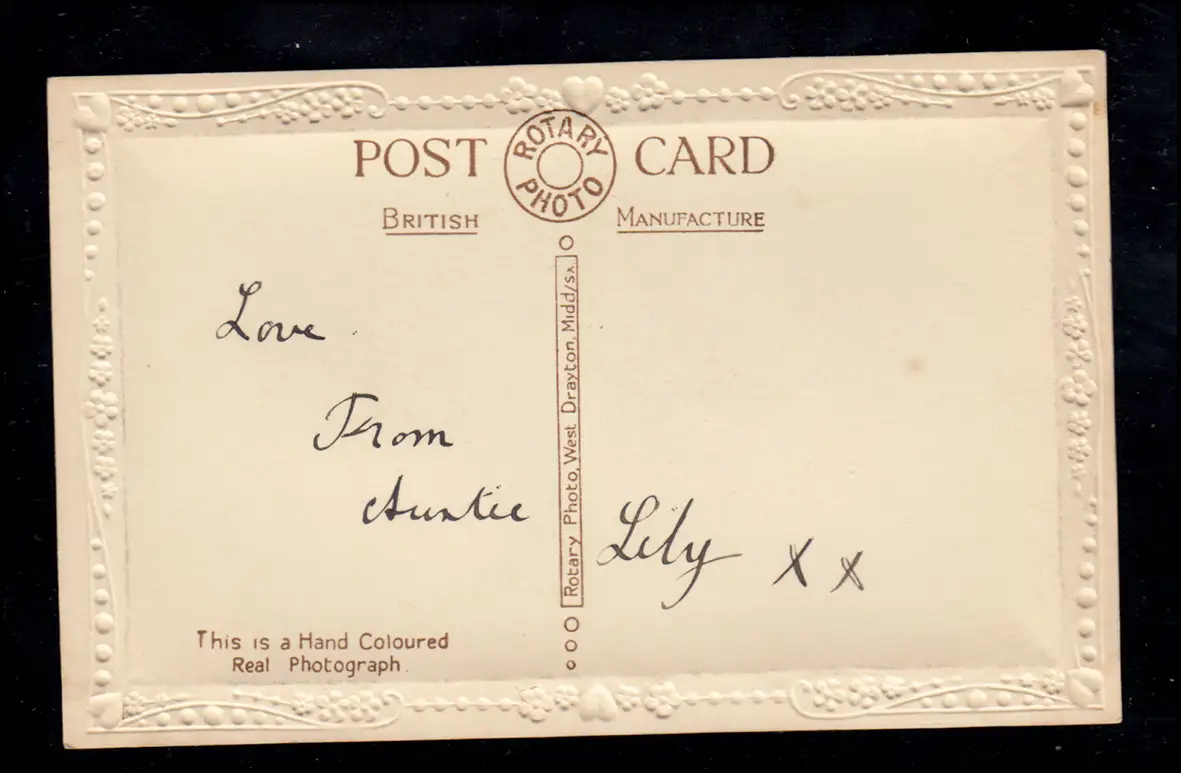 POST CARD
ROTARY PHOTO
BRITISH MANUFACTURE
Rotary Photo, West Drayton, Midd/sx
Love
From
Auntie Lily X X
This is a Hand Coloured
Real Photograph.